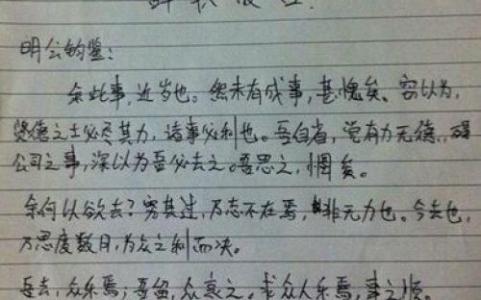 辞职报告
明公钧鉴:
余此事,近岁也。然未有成事,甚愧矣。窃以为,
贤德之士必尽其力,诸事必利也。吾自省,觉有力无德,
公司之事,深以为吾必去之。吾思之,惘矣。
余何以欲去?究其过,乃志不在焉,非无力也。今去也,
乃思度数月,为众之利而决。
吾去,众乐焉;吾留,众哀之。求众人乐焉,事之顺